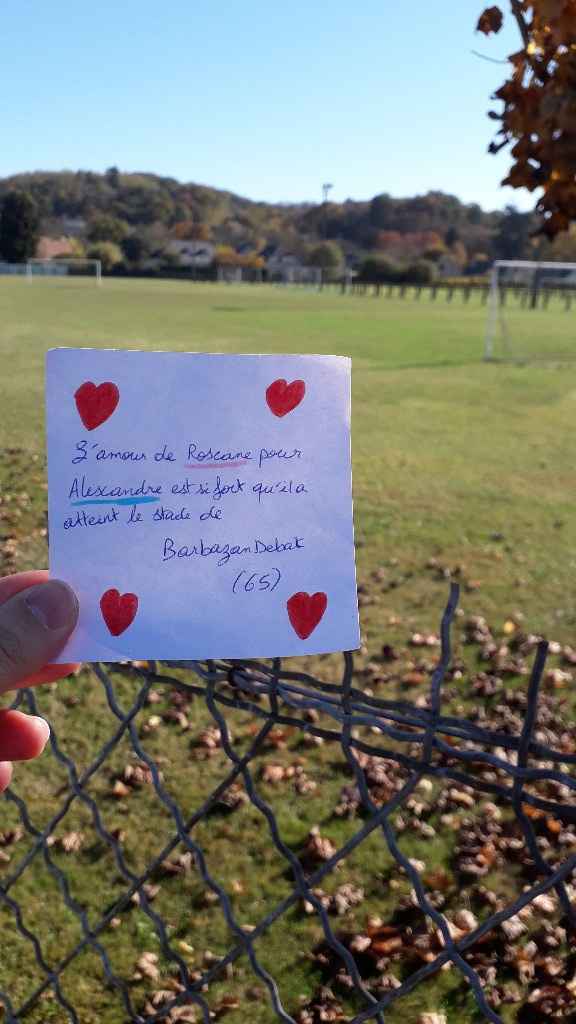 L'amour de Roxane pour
Alexandre est si fort qu'il a
atteint le stade de
Barbazan Debat
(65)